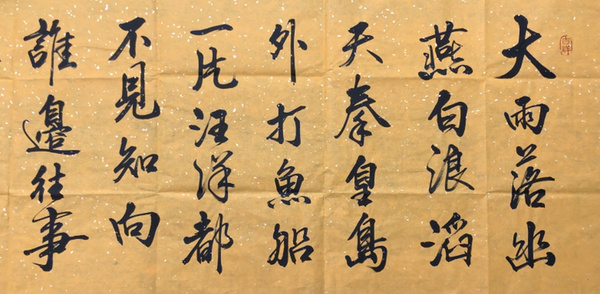 大雨落幽
燕白浪滔
天秦皇島
外打魚船
一片汪洋都
不見知向
誰邊往事